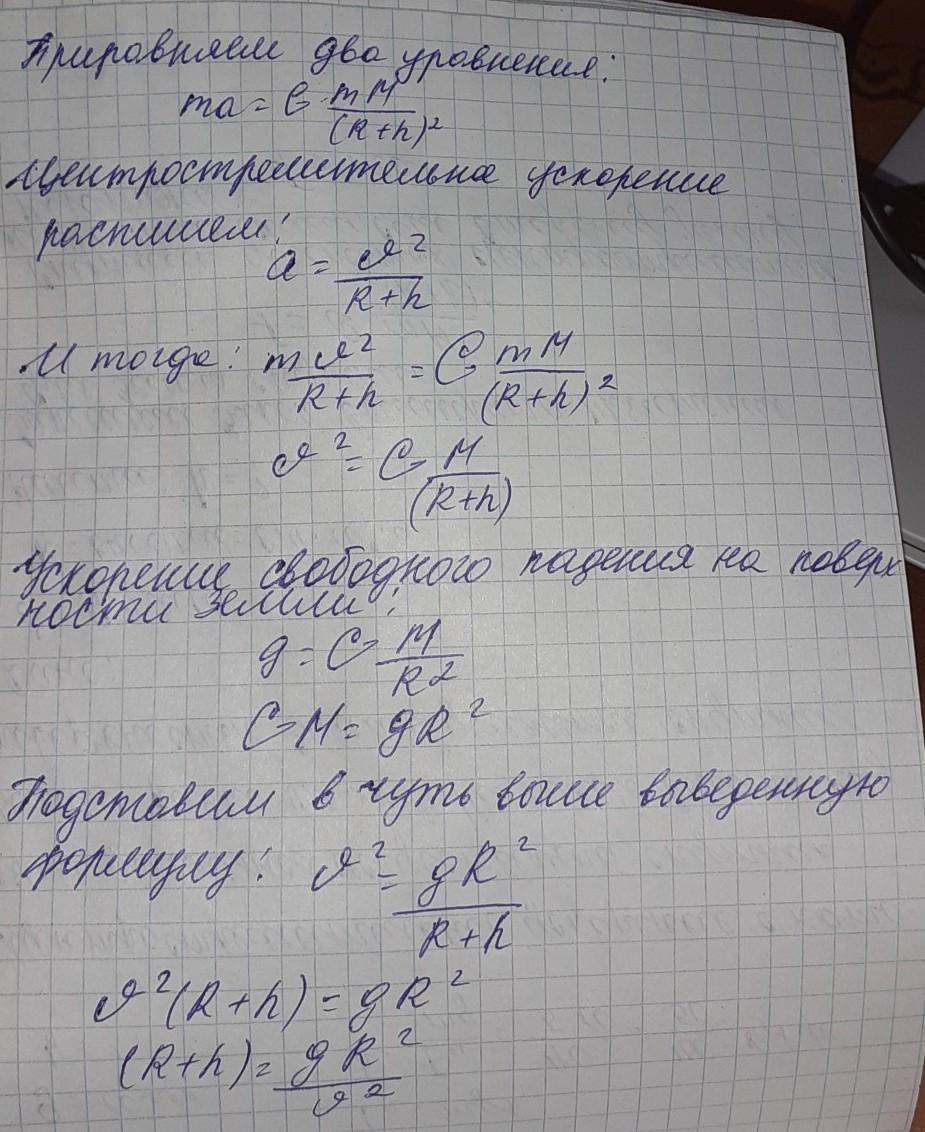 Приравняем два уравнения:
ma = G mM/(R+h)²
Центростремительное ускорение
распишем:
a = v²/(R+h)
И тогда: m v²/(R+h) = G mM/(R+h)²
v² = G M/(R+h)
Ускорение свободного падения на поверх
ности земли:
g = G M/R²
GM = gR²
Подставим в чуть выше выведенную
формулу: v² = gR²/(R+h)
v²(R+h) = gR²
(R+h) = gR²/v²